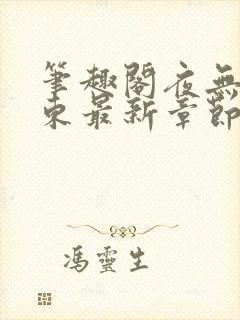 筆趣閣夜無
東最新章節
馮靈生